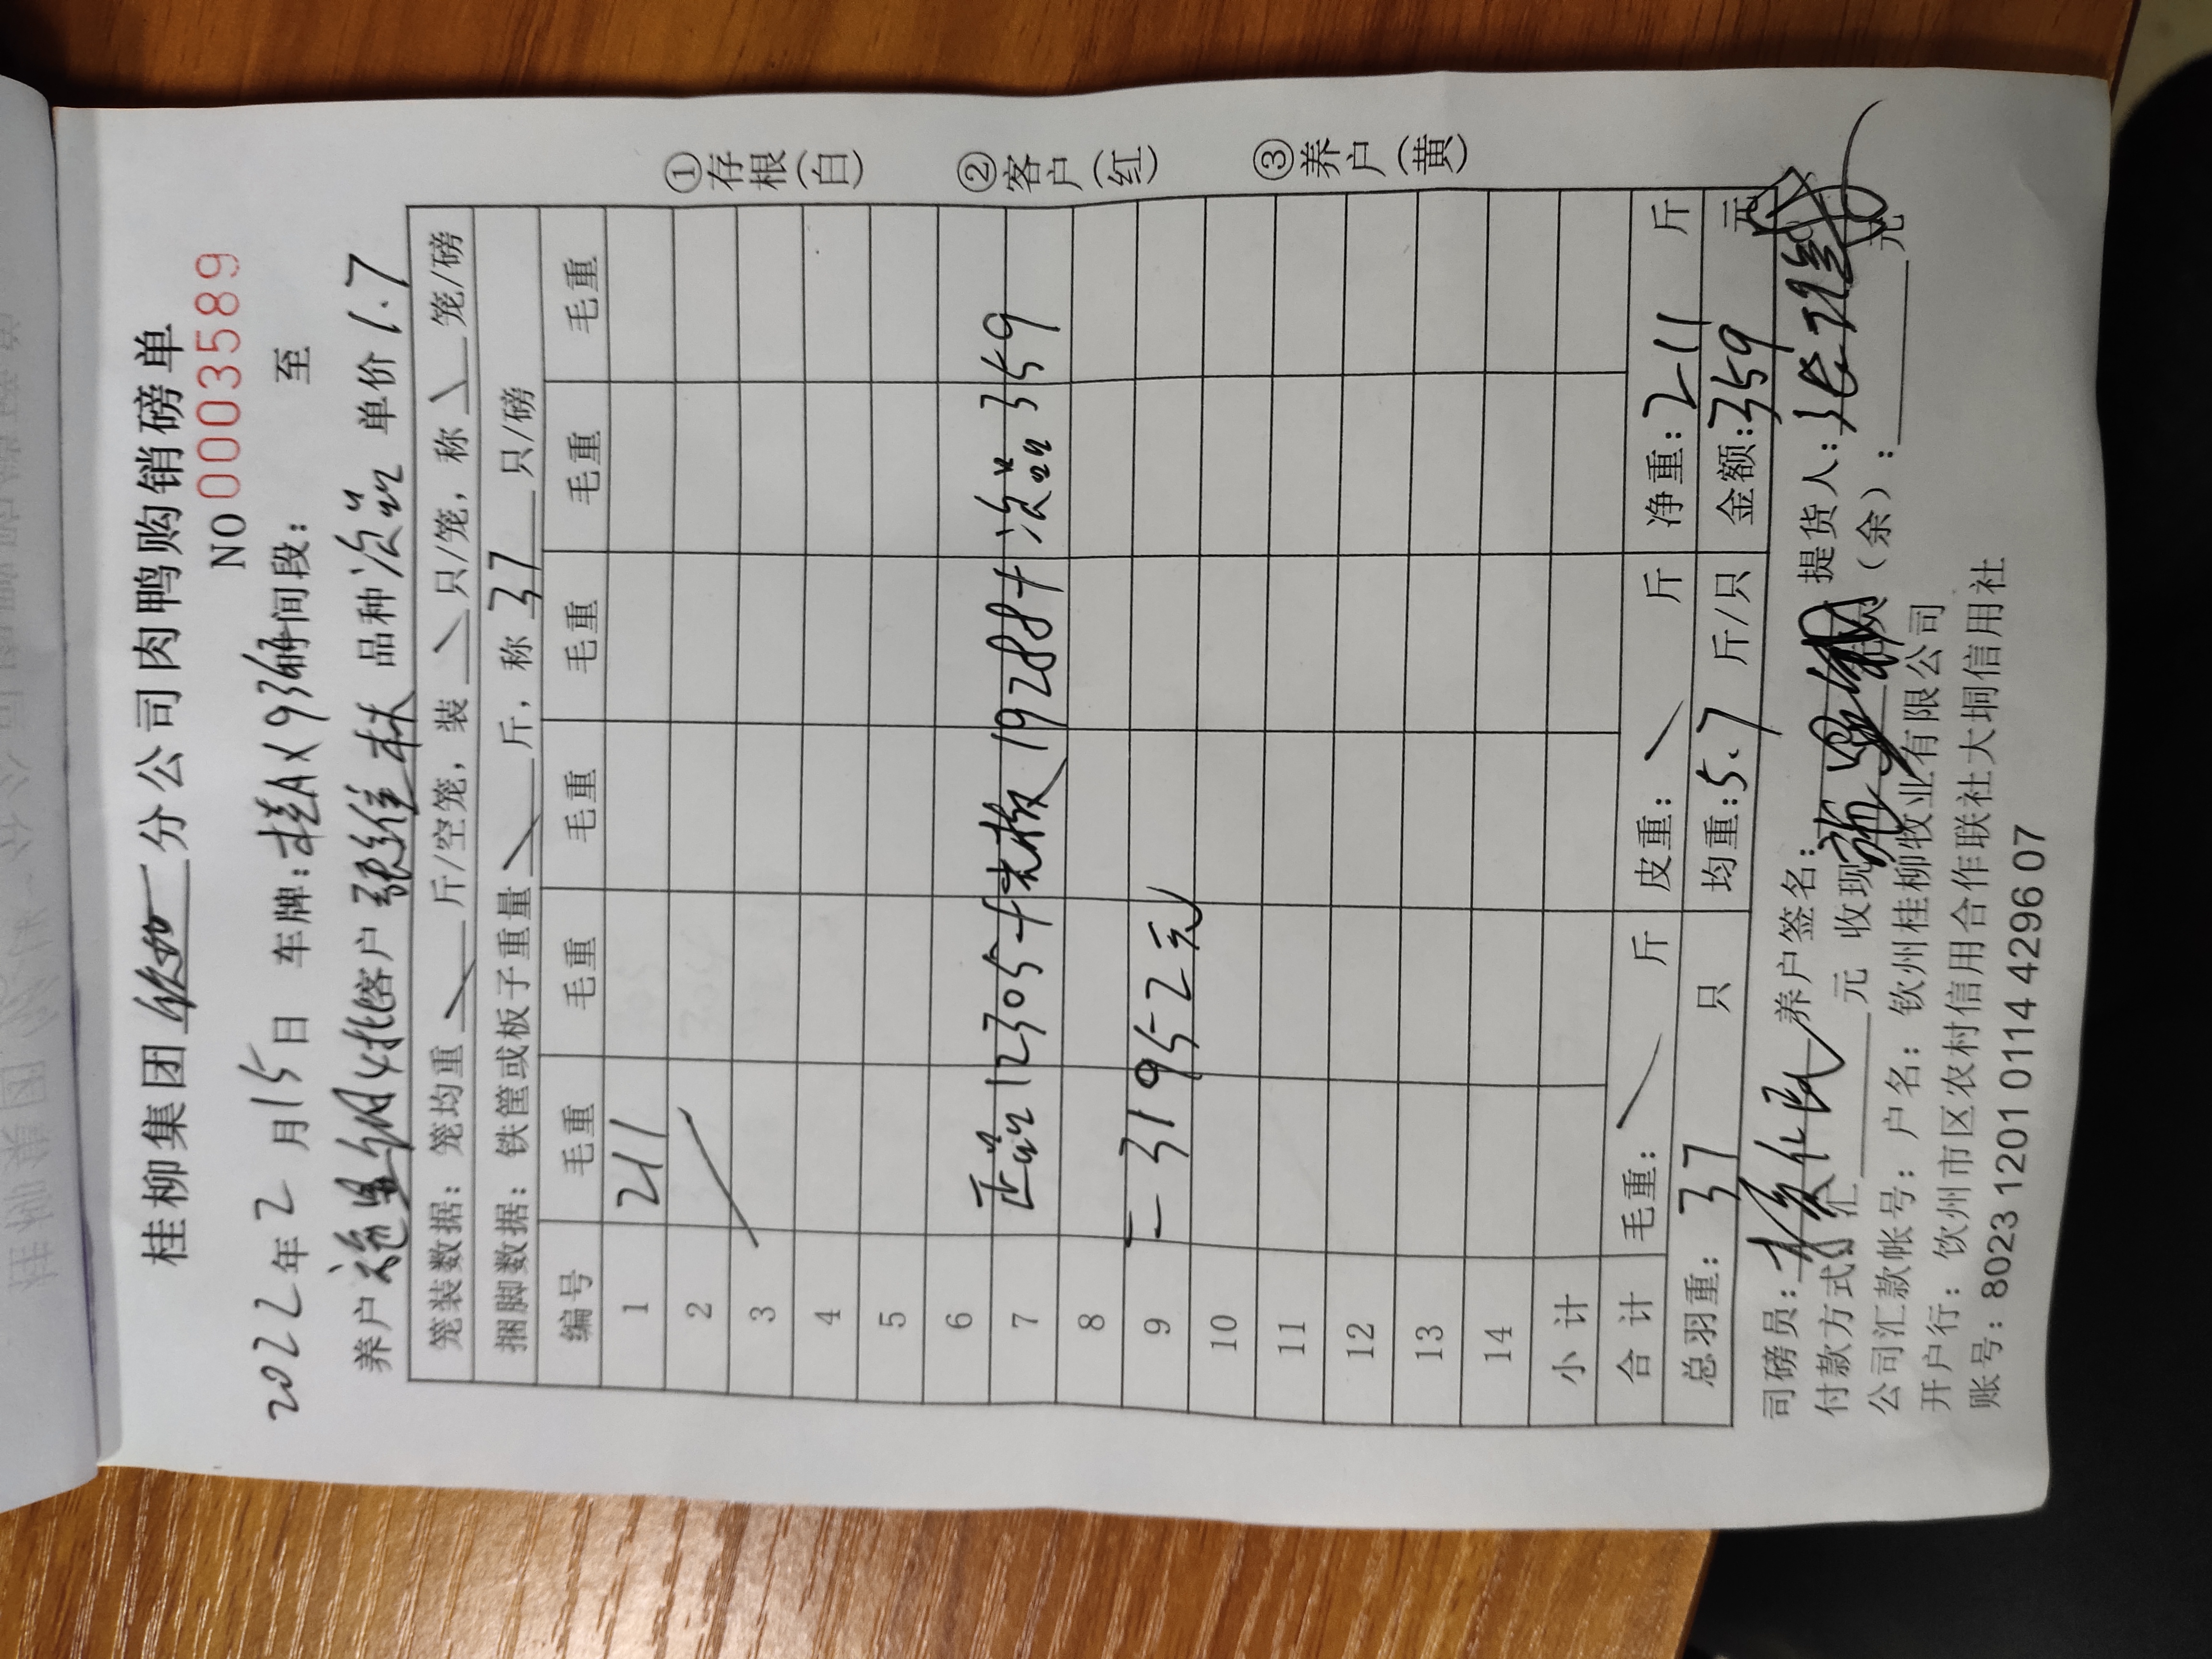 桂柳集团钦州一分公司肉鸭购销磅单
NO 0003589
2022年2月15日 车牌:桂AX936 时间段: 至
养户 4批 客户 张维林 品种 次品 单价 1.7
笼装数据: 笼均重 斤/空笼, 装 只/笼, 称 笼/磅
捆脚数据: 铁筐或板子重量 斤, 称 37 只/磅
编号 毛重 毛重 毛重 毛重 毛重 毛重
1 211
2
3
4
5
6
7 正品12305+光板19288+次品359
8
9 =31952元
10
11
12
13
14
小计
合计 毛重: 斤 皮重: 斤 净重: 211 斤
总羽重: 37 只 均重: 5.7 斤/只 金额: 359 元
司磅员: 养户签名: 提货人:
付款方式 汇 元 收现 (余): 元
公司汇款帐号: 户名: 钦州桂柳牧业有限公司
开户行: 饮州市区农村信用合作联社大垌信用社
账号: 8023 1201 0114 4296 07
①存根(白)
②客户(红)
③养户(黄)